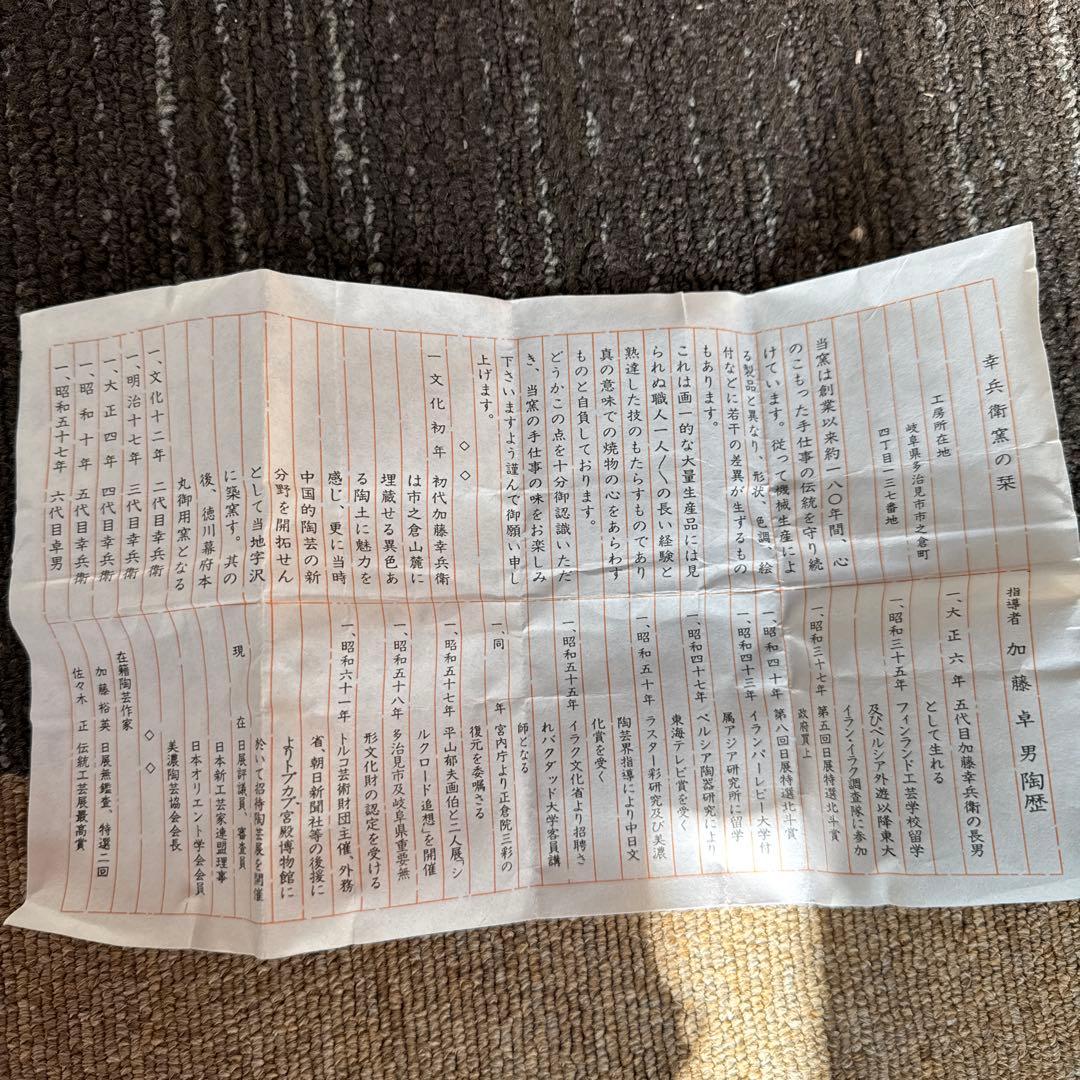 幸兵衛窯の栞
工房所在地
岐阜県多治見市市之倉町
四丁目一三七番地
当窯は創業以来約一八〇年間、心
のこもった手仕事の伝統を守り続
けています。従って機械生産によ
る製品と異なり、形状、色調、絵
付などに若干の差異が生ずるもの
もあります。
これは画一的な大量生産品には見
られぬ職人一人〳〵の長い経験と
熟達した技のもたらすものであり
真の意味での焼物の心をあらわす
ものと自負しております。
どうかこの点を十分御認識いただ
き、当窯の手仕事の味をお楽しみ
下さいますよう謹んで御願い申し
上げます。
◇ ◇
一文化初年 初代加藤幸兵衛
は市之倉山麓に
埋蔵せる異色あ
る陶土に魅力を
感じ、更に当時
中国的陶芸の新
分野を開拓せん
として当地字沢
に築窯す。其の
後、徳川幕府本
丸御用窯となる
一、文化十二年 二代目幸兵衛
一、明治十七年 三代目幸兵衛
一、大正四年 四代目幸兵衛
一、昭和十年 五代目幸兵衛
一、昭和五十七年 六代目卓男
指導者 加藤卓男陶歴
一、大正六年 五代目加藤幸兵衛の長男
として生れる
一、昭和三十五年 フィンランド工芸学校留学
及びペルシア外遊以降東大
イラン・イラク調査隊に参加
一、昭和三十七年 第五回日展特選北斗賞
政府買上
一、昭和四十年 第八回日展特選北斗賞
一、昭和四十三年 イランパーレビー大学付
属アジア研究所に留学
一、昭和四十七年 ペルシア陶器研究により
東海テレビ賞を受く
一、昭和五十年 ラスター彩研究及び美濃
陶芸界指導により中日文
化賞を受く
一、昭和五十五年 イラク文化省より招聘さ
れバタダッド大学客員講
師となる
一、同年 宮内庁より正倉院三彩の
復元を委嘱さる
一、昭和五十七年 平山郁夫画伯と二人展「シ
ルクロード追想」を開催
一、昭和五十八年 多治見市及岐阜県重要無
形文化財の認定を受ける
一、昭和六十一年 トルコ芸術財団主催、外務
省、朝日新聞社等の後援に
よりトプカプ宮殿博物館に
於いて招待陶芸展を開催
現在 日展評議員、審査員
日本新工芸家連盟理事
日本オリエント学会会員
美濃陶芸協会会長
◇ ◇
在籍陶芸作家
加藤裕英 日展無鑑査、特選二回
佐々木正 伝統工芸展最高賞